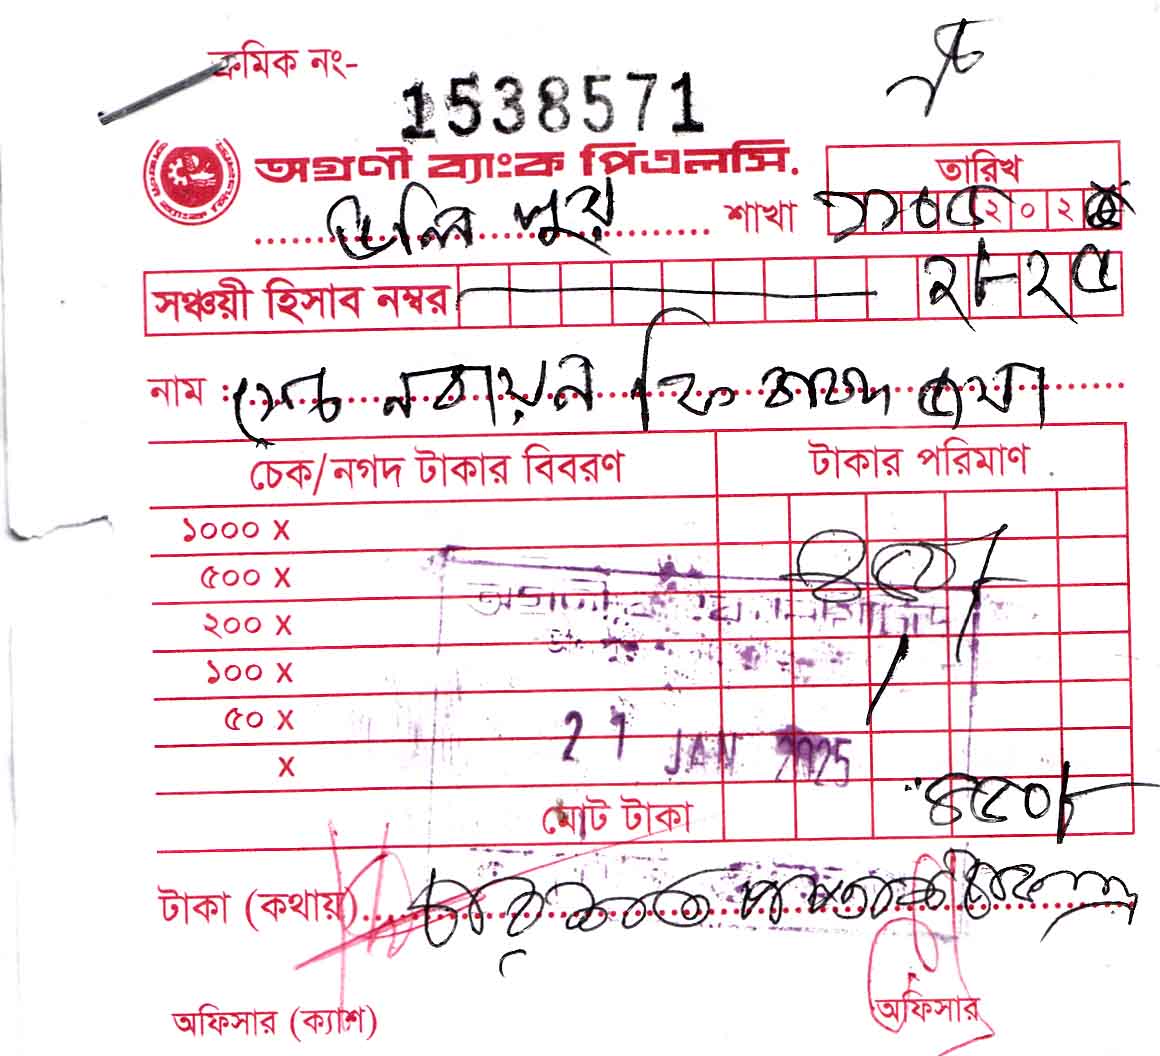 ক্রমিক নং-
1538571
অগ্রণী ব্যাংক পিএলসি.
তারিখ
উলিপুর শাখা ২০২৫
সঞ্চয়ী হিসাব নম্বর ২৮২৫
নাম :
চেক/নগদ টাকার বিবরণ টাকার পরিমাণ
১০০০ X
৫০০ X
২০০ X
১০০ X
৫০ X
X
21 JAN 2025
মোট টাকা ৪৫০/-
টাকা (কথায়) চার শত পঞ্চাশ টাকা মাত্র
অফিসার (ক্যাশ) অফিসার